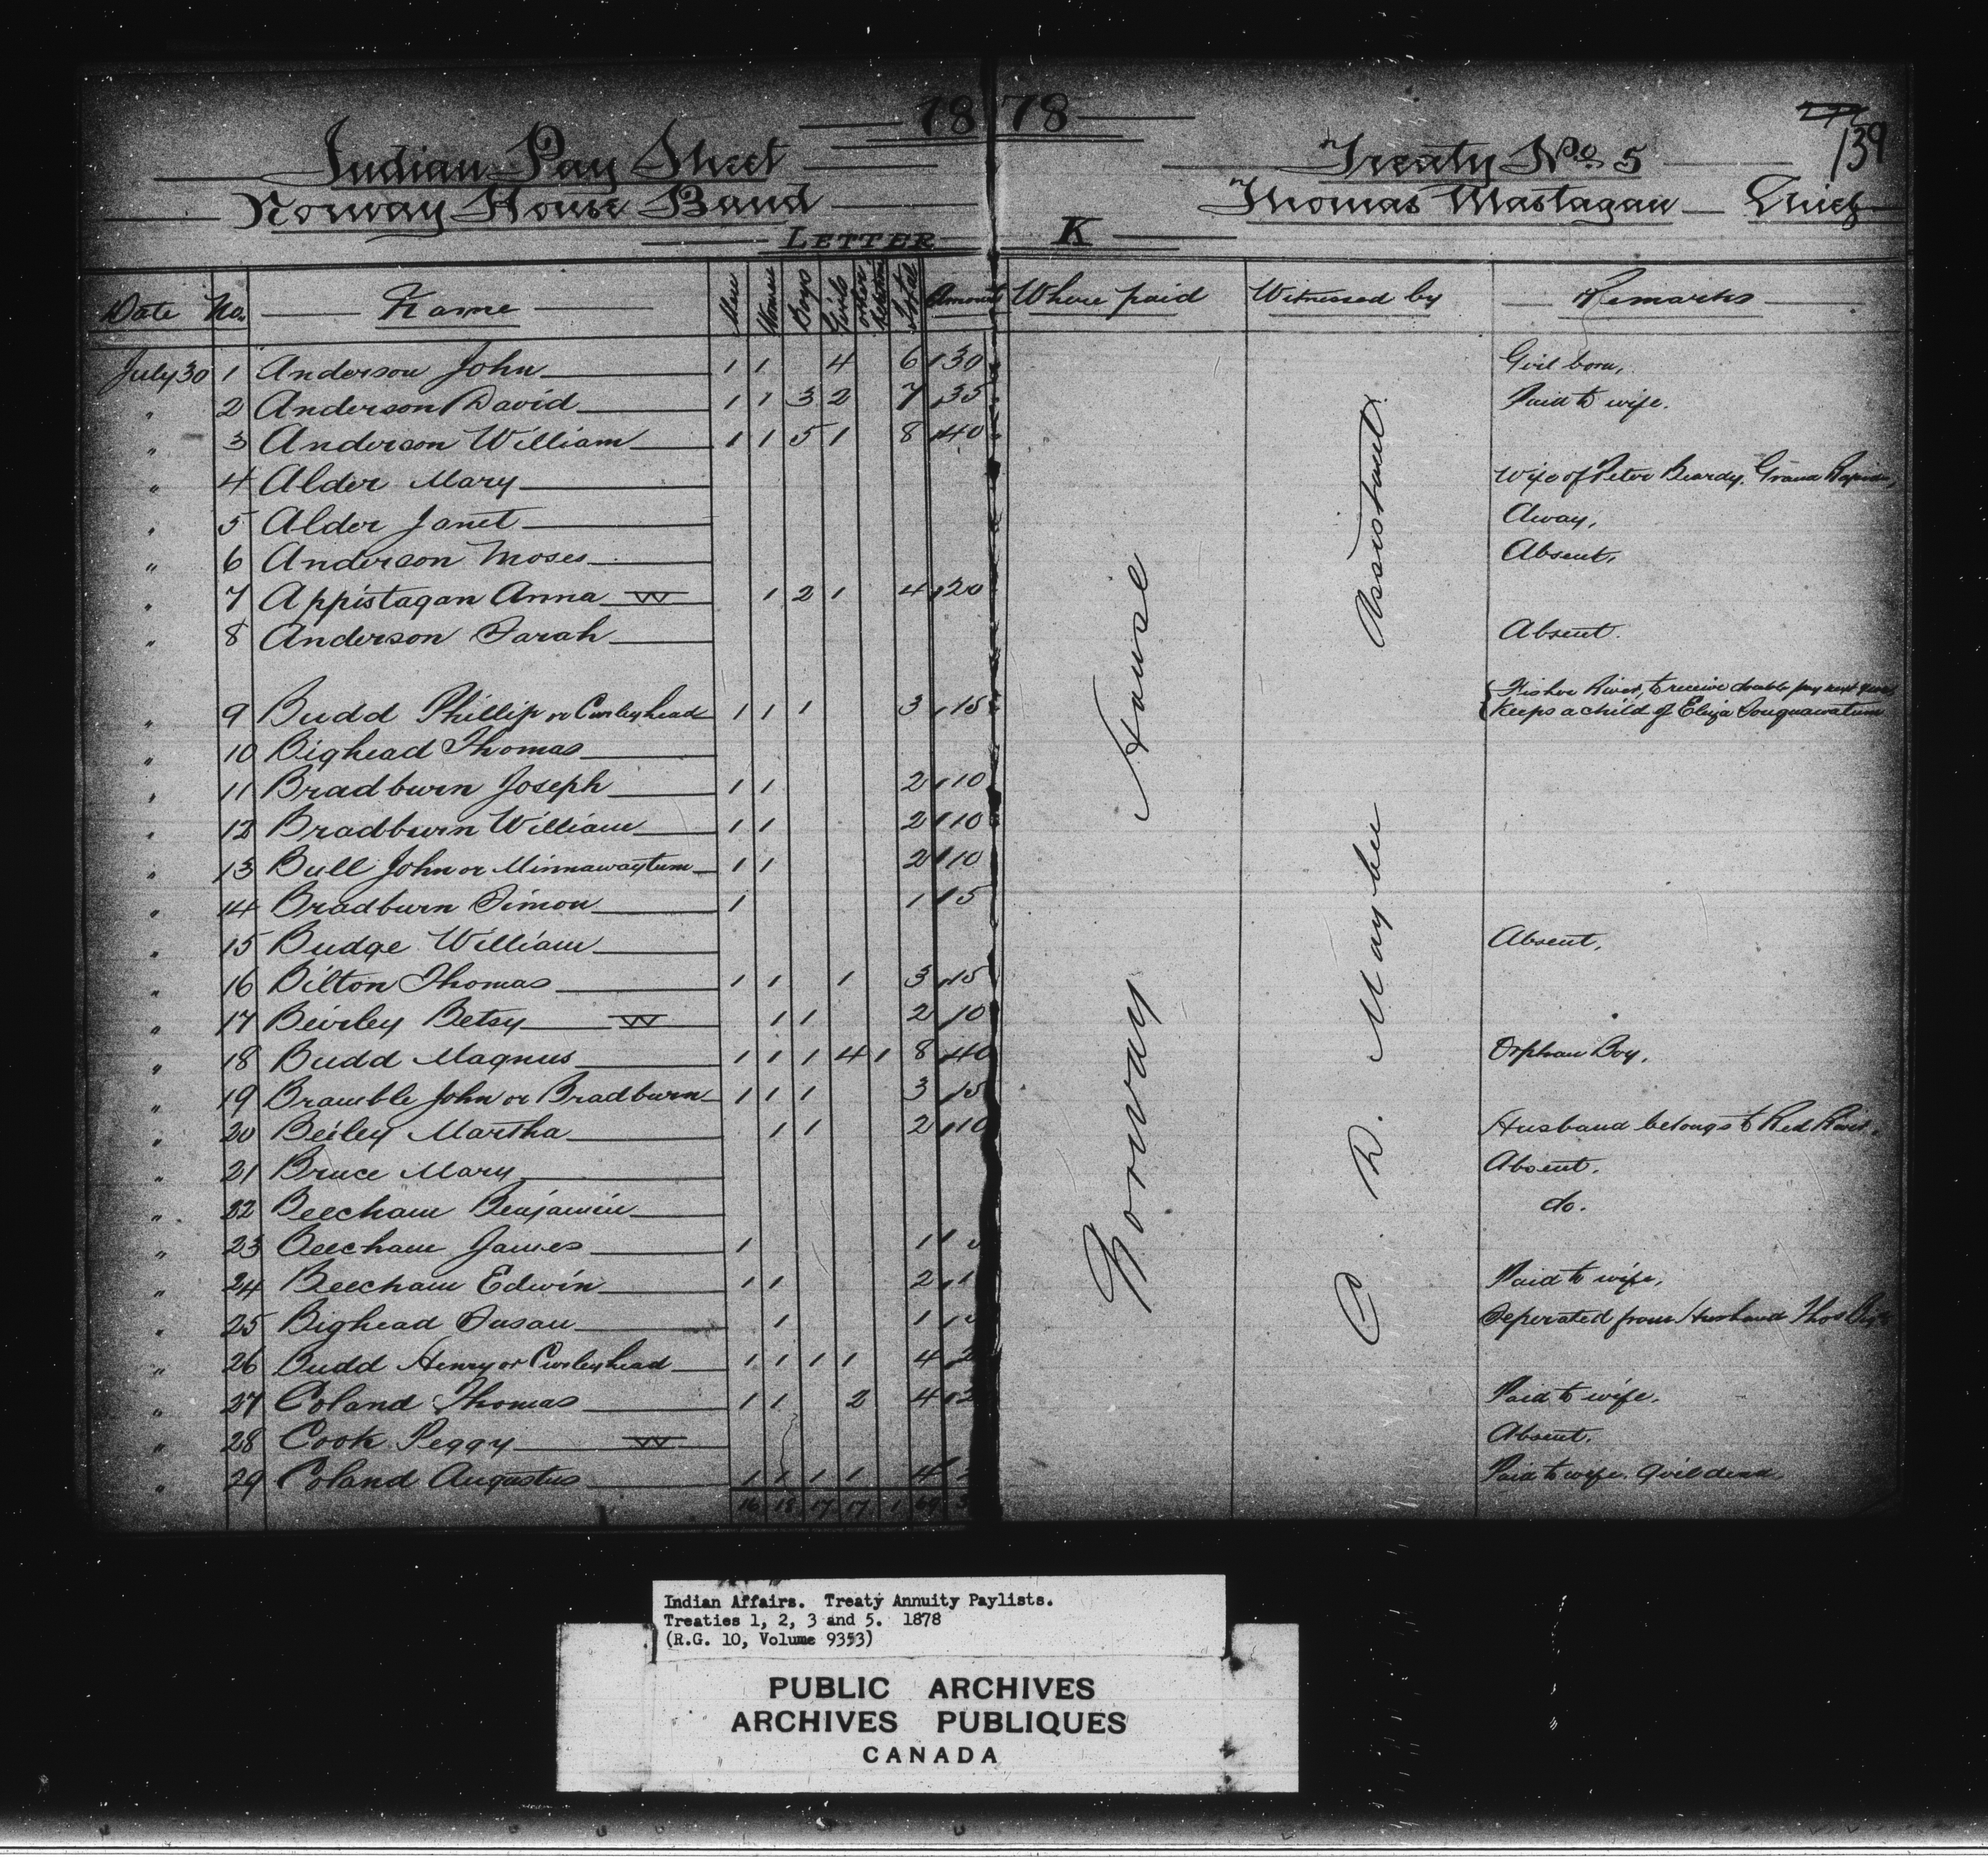 1878
139
Indian Pay Sheet Treaty No. 5
Norway House Band Thomas Mastagan Chief
LETTER K
Date No. Name Men Women Boys Girls other Total Amount Where paid Witnessed by Remarks
July 30 1 Anderson John 1 1 4 6 30 Girl born,
" 2 Anderson David 1 1 3 2 7 35 Paid to wife.
" 3 Anderson William 1 1 5 1 8 40
" 4 Alder Mary Wife of Peter Beardy. Grand Rapids,
" 5 Alder Janet Away,
" 6 Anderson Moses Absent,
" 7 Appistagan Anna W 1 2 1 4 20
" 8 Anderson Sarah Absent.
" 9 Budd Phillip or Curleyhead 1 1 1 3 15 Fisher River, to receive double pay next year
Keeps a child of Eliza
" 10 Bighead Thomas
" 11 Bradburn Joseph 1 1 2 10
" 12 Bradburn William 1 1 2 10
" 13 Bull John or Minnawaytum 1 1 2 10
" 14 Bradburn Simon 1 1 5
" 15 Budge William Absent,
" 16 Bilton Thomas 1 1 1 3 15
" 17 Beirley Betsy W 1 1 2 10
" 18 Budd Magnus 1 1 1 4 1 8 40 Orphan Boy,
" 19 Bramble John or Bradburn 1 1 1 3 15
" 20 Beiley Martha 1 1 2 10 Husband belongs to Red River.
" 21 Bruce Mary Absent.
" 22 Beecham Benjamin do.
" 23 Beecham James 1 1
" 24 Beecham Edwin 1 1 2 1 Paid to wife,
" 25 Bighead Susan 1 1 Seperated from Husband Thos
" 26 Budd Henry or Curleyhead 1 1 1 1 4 2
" 27 Coland Thomas 1 1 2 4 2 Paid to wife.
" 28 Cook Peggy W Absent.
" 29 Coland Augustus 1 1 1 1 4 Paid to wife. Girl dead
16 18 17 17 1 69 3
Norway House
C. D. Maybee Assistant
Indian Affairs. Treaty Annuity Paylists.
Treaties 1, 2, 3 and 5. 1878
(R.G. 10, Volume 9353)
PUBLIC ARCHIVES
ARCHIVES PUBLIQUES
CANADA